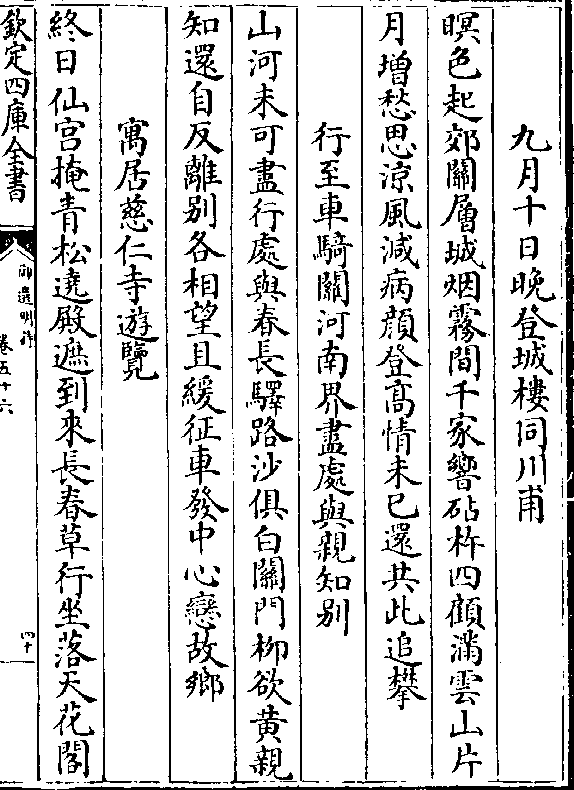 九月十日晚登城樓同川甫
暝色起郊關層城烟霧間千家響砧杵四顧滿雲山片
月增愁思涼風減病顔登高情未已還共此追攀
行至車騎關河南界盡處與親知别
山河未可盡行處與春長驛路沙俱白關門柳欲黄親
知還自反離别各相望且緩征車發中心戀故鄉
寓居慈仁寺遊覽
終日仙宫掩青松遶殿遮到來長春草行坐落天花閣
欽定四庫全書
御選明詩
卷五十六
四十